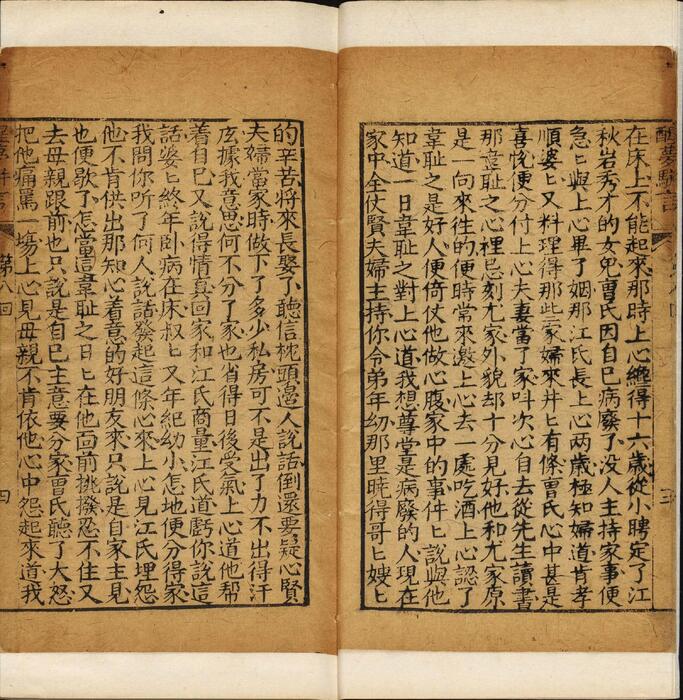 醒夢駢言 三
在床上不能起來那時上心纔得十六歲從小聘定了江
秋岩秀才的女兒曹氏因自己病廢了没人主持家事便
急匕與上心畢了姻那江氏長上心兩歲極知婦道肯孝
順婆匕又料理得那些家婦來井匕有條曹氏心中甚是
喜悅便分付上心夫妻當了家呌次心自去從先生讀書
那韋恥之心裡忌刻尤家外貌却十分見好他和尤家原
是一向來徃的便時常來邀上心去一處吃酒上心認了
韋恥之是好人便倚仗他做心腹家中的事件匕說與他
知道一日韋恥之對上心道我想尊堂是病廢的人現在
家中全仗賢夫婦主持你令弟年幼那里曉得哥匕嫂匕
的辛苦將來長娶了聽信枕頭邊人說話倒還要疑心賢
夫婦當家時做下了多少私房可不是出了力不出得汗
庅據我意思何不分了家也省得日後受氣上心道他幫
着自已又說得情真回家和江氏商量江氏道虧你說這
話婆匕終年卧病在床叔匕又年紀幼小怎地便分得家
我問你听了何人說話發起這條心來上心見江氏埋怨
他不肯供出那知心着意的好朋友來只說是自家主見
也便歇了怎當這韋恥之日匕在他面前挑撥忍不住又
去母親跟前也只說是自已主意要分家曹氏聽了大怒
把他痛罵一塲上心見母親不肯依他心中怨起來道我
第八回 四